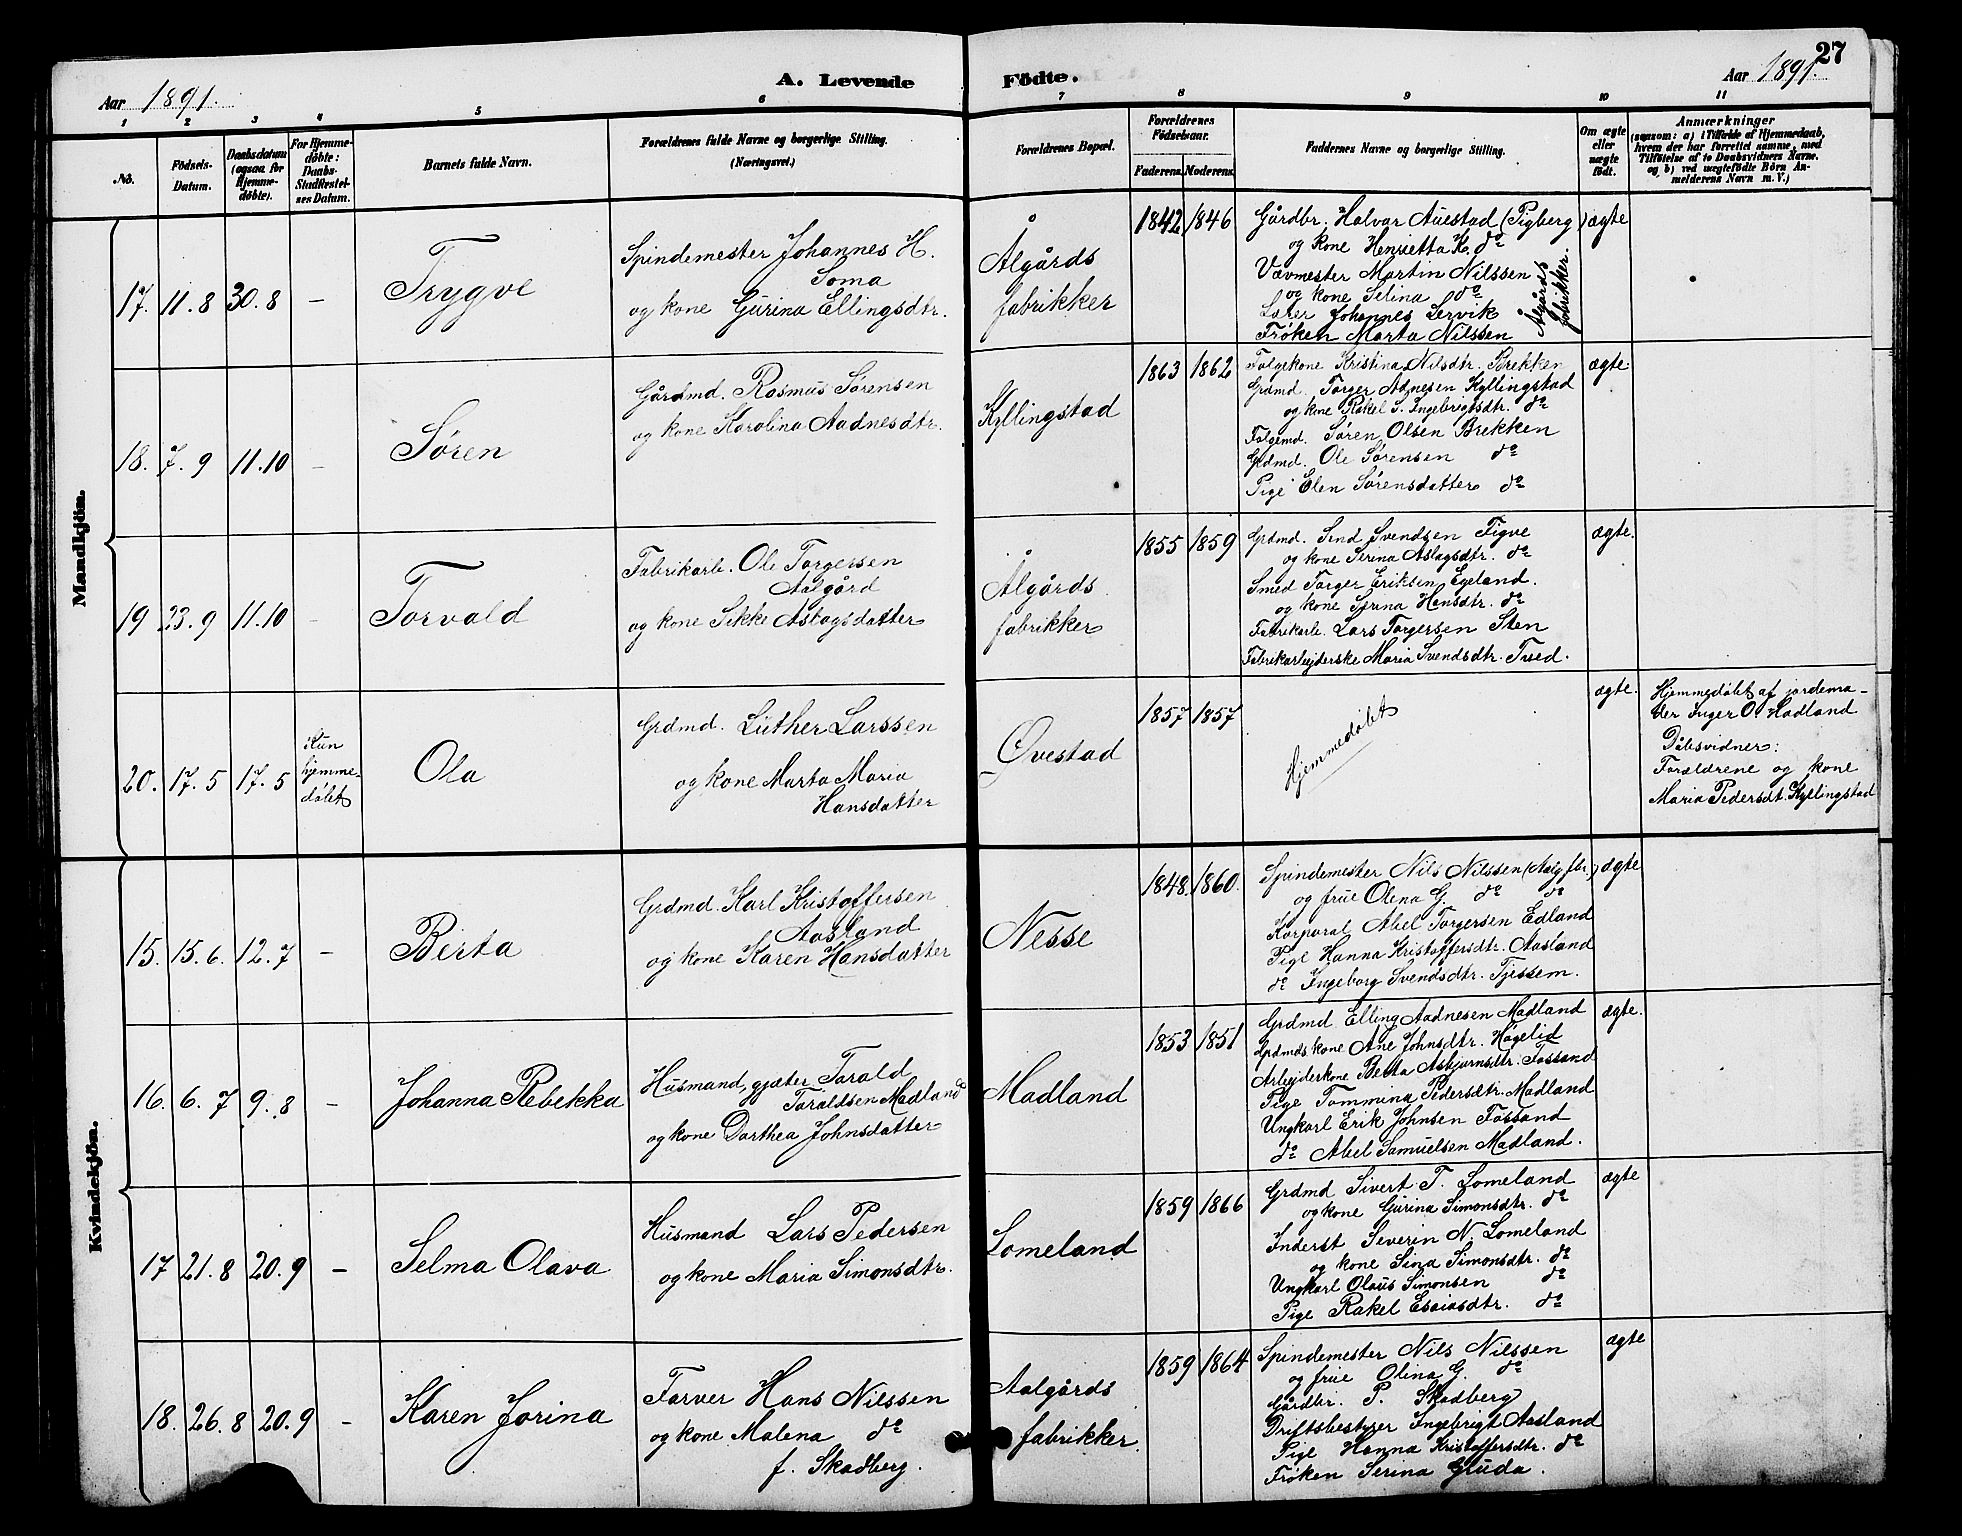 27
Aar 1891.
A. Levende Födte.
Aar 1891.
1 2 3 4 5 6 7 8 9 10 11
No.
Födsels-
Datum.
Daabsdatum
(ogsaa for
Hjemme-
döbte).
For Hjemme-
döbte:
Daabs-
Stadfæstel-
ses Datum.
Barnets fulde Navn.
Forældrenes fulde Navne og borgerlige Stilling.
(Næringsvei.)
Forældrenes Bopæl.
Forældrenes
Födselsaar.
Faderens. Moderens.
Faddernes Navne og borgerlige Stilling.
Om ægte
eller
uægte
födt.
Anmærkninger
(saasom: a) i Tilfælde af Hjemmedaab,
hvem der har forrettet samme, med
Tilföielse af to Daabsvidners Navne.
og b) ved uægtefödte Börn An-
melderens Navn m. V.)
Mandkjön.
17. 11.8 30.8 – Trygve
Spindemester Johannes H.
Soma
og kone Gurina Ellingsdtr.
Ålgårds
fabrikker
1842 1846
Gårdbr. Halvar Auestad (Pigberg)
og kone Henrietta K. do
Vævmester Martin Nilssen
og kone Selina do
Lærer Johannes Lervik
Frøken Marta Nilssen
Ålgårds
fabrikker
ægte
18. 7.9 11.10 – Søren
Gårdmd. Rasmus Sørensen
og kone Karolina Aadnesdtr.
Kyllingstad
1863 1862
Folgekone Kristina Nilsdtr. Brekken
Grdmd. Torger Adnesen Kyllingstad
og kone Rakel S. Ingebrigtsdtr. do
Folgemd. Søren Olsen Brekken
Grdmd. Ole Sørensen do
Pige Elen Sørensdatter do
ægte
19 23.9 11.10 – Torvald
Fabrikarb. Ole Torgersen
Aalgård
og kone Sikke Aslagsdatter
Ålgårds
fabrikker
1855 1859
Grdmd. Svend Svendsen Figve
og kone Serina Aslagsdtr. do
Smed Torger Eriksen Egeland.
og kone Serina Hansdtr. do
Fabrikarb. Lars Torgersen Sten
Fabrikarbejderske Maria Svendsdtr. Tved.
ægte.
20. 17.5 17.5
Kun
hjemme-
døbt
Ola
Grdmd. Luther Larssen
og kone Marta Maria
Hansdatter
Øvestad
1857 1857
Hjemmedøbt
ægte.
Hjemmedøbt af jordemo-
der Inger O. Hadland
Dåbsvidner:
Forældrene og kone
Maria Pedersdt. Kyllingstad
Kvindekjön.
15. 15.6. 12.7 – Berta
Grdmd. Karl Kristoffersen
Aasland
og kone Karen Hansdatter
Nesse
1848. 1860.
Spindemester Nils Nilssen (Aalg. fbr.)
og frue Olena G. do do
Korporal Abel Torgersen Edland
Pige Hanna Kristoffersdtr. Aasland
do Ingeborg Svendsdtr. Tjessem.
ægte
16. 6.7 9.8 – Johanna Rebekka
Husmand, gjæter Tarald
Taraldsen Madland
og kone Dorthea Johnsdatter
Madland
1853 1851
Grdmd Elling Aadnesen Madland
Grdmds. kone Ane Johnsdtr. Høgelid
Arbejderkone Berta Asbjørnsdtr. Fossand
Pige Tommina Pedersdtr. Madland
Ungkarl Erik Johnsen Fossand
do Abel Samuelsen Madland.
ægte.
17 21.8 20.9 – Selma Olava
Husmand Lars Pedersen
og kone Maria Simonsdtr.
Lomeland
1859 1866
Grdmd Sivert T. Lomeland
og kone Gurina Simonsdtr. do
Inderst Severin N. Lomeland
og kone Sina Simonsdtr. do
Ungkarl Olaus Simonsen do
Pige Rakel Esaiasdtr. do
ægte
18. 26.8 20.9 – Karen Jorina
Farver Hans Nilssen
og kone Malena do
f. Skadberg.
Aalgårds
fabrikker.
1859 1864
Spindemester Nils Nilssen
og frue Olina G. do
Gårdbr. P. Skadberg
Driftsbestyrer Ingebrigt Aasland
Pige Hanna Kristoffersdtr. do
Frøken Serina Gruda.
ægte